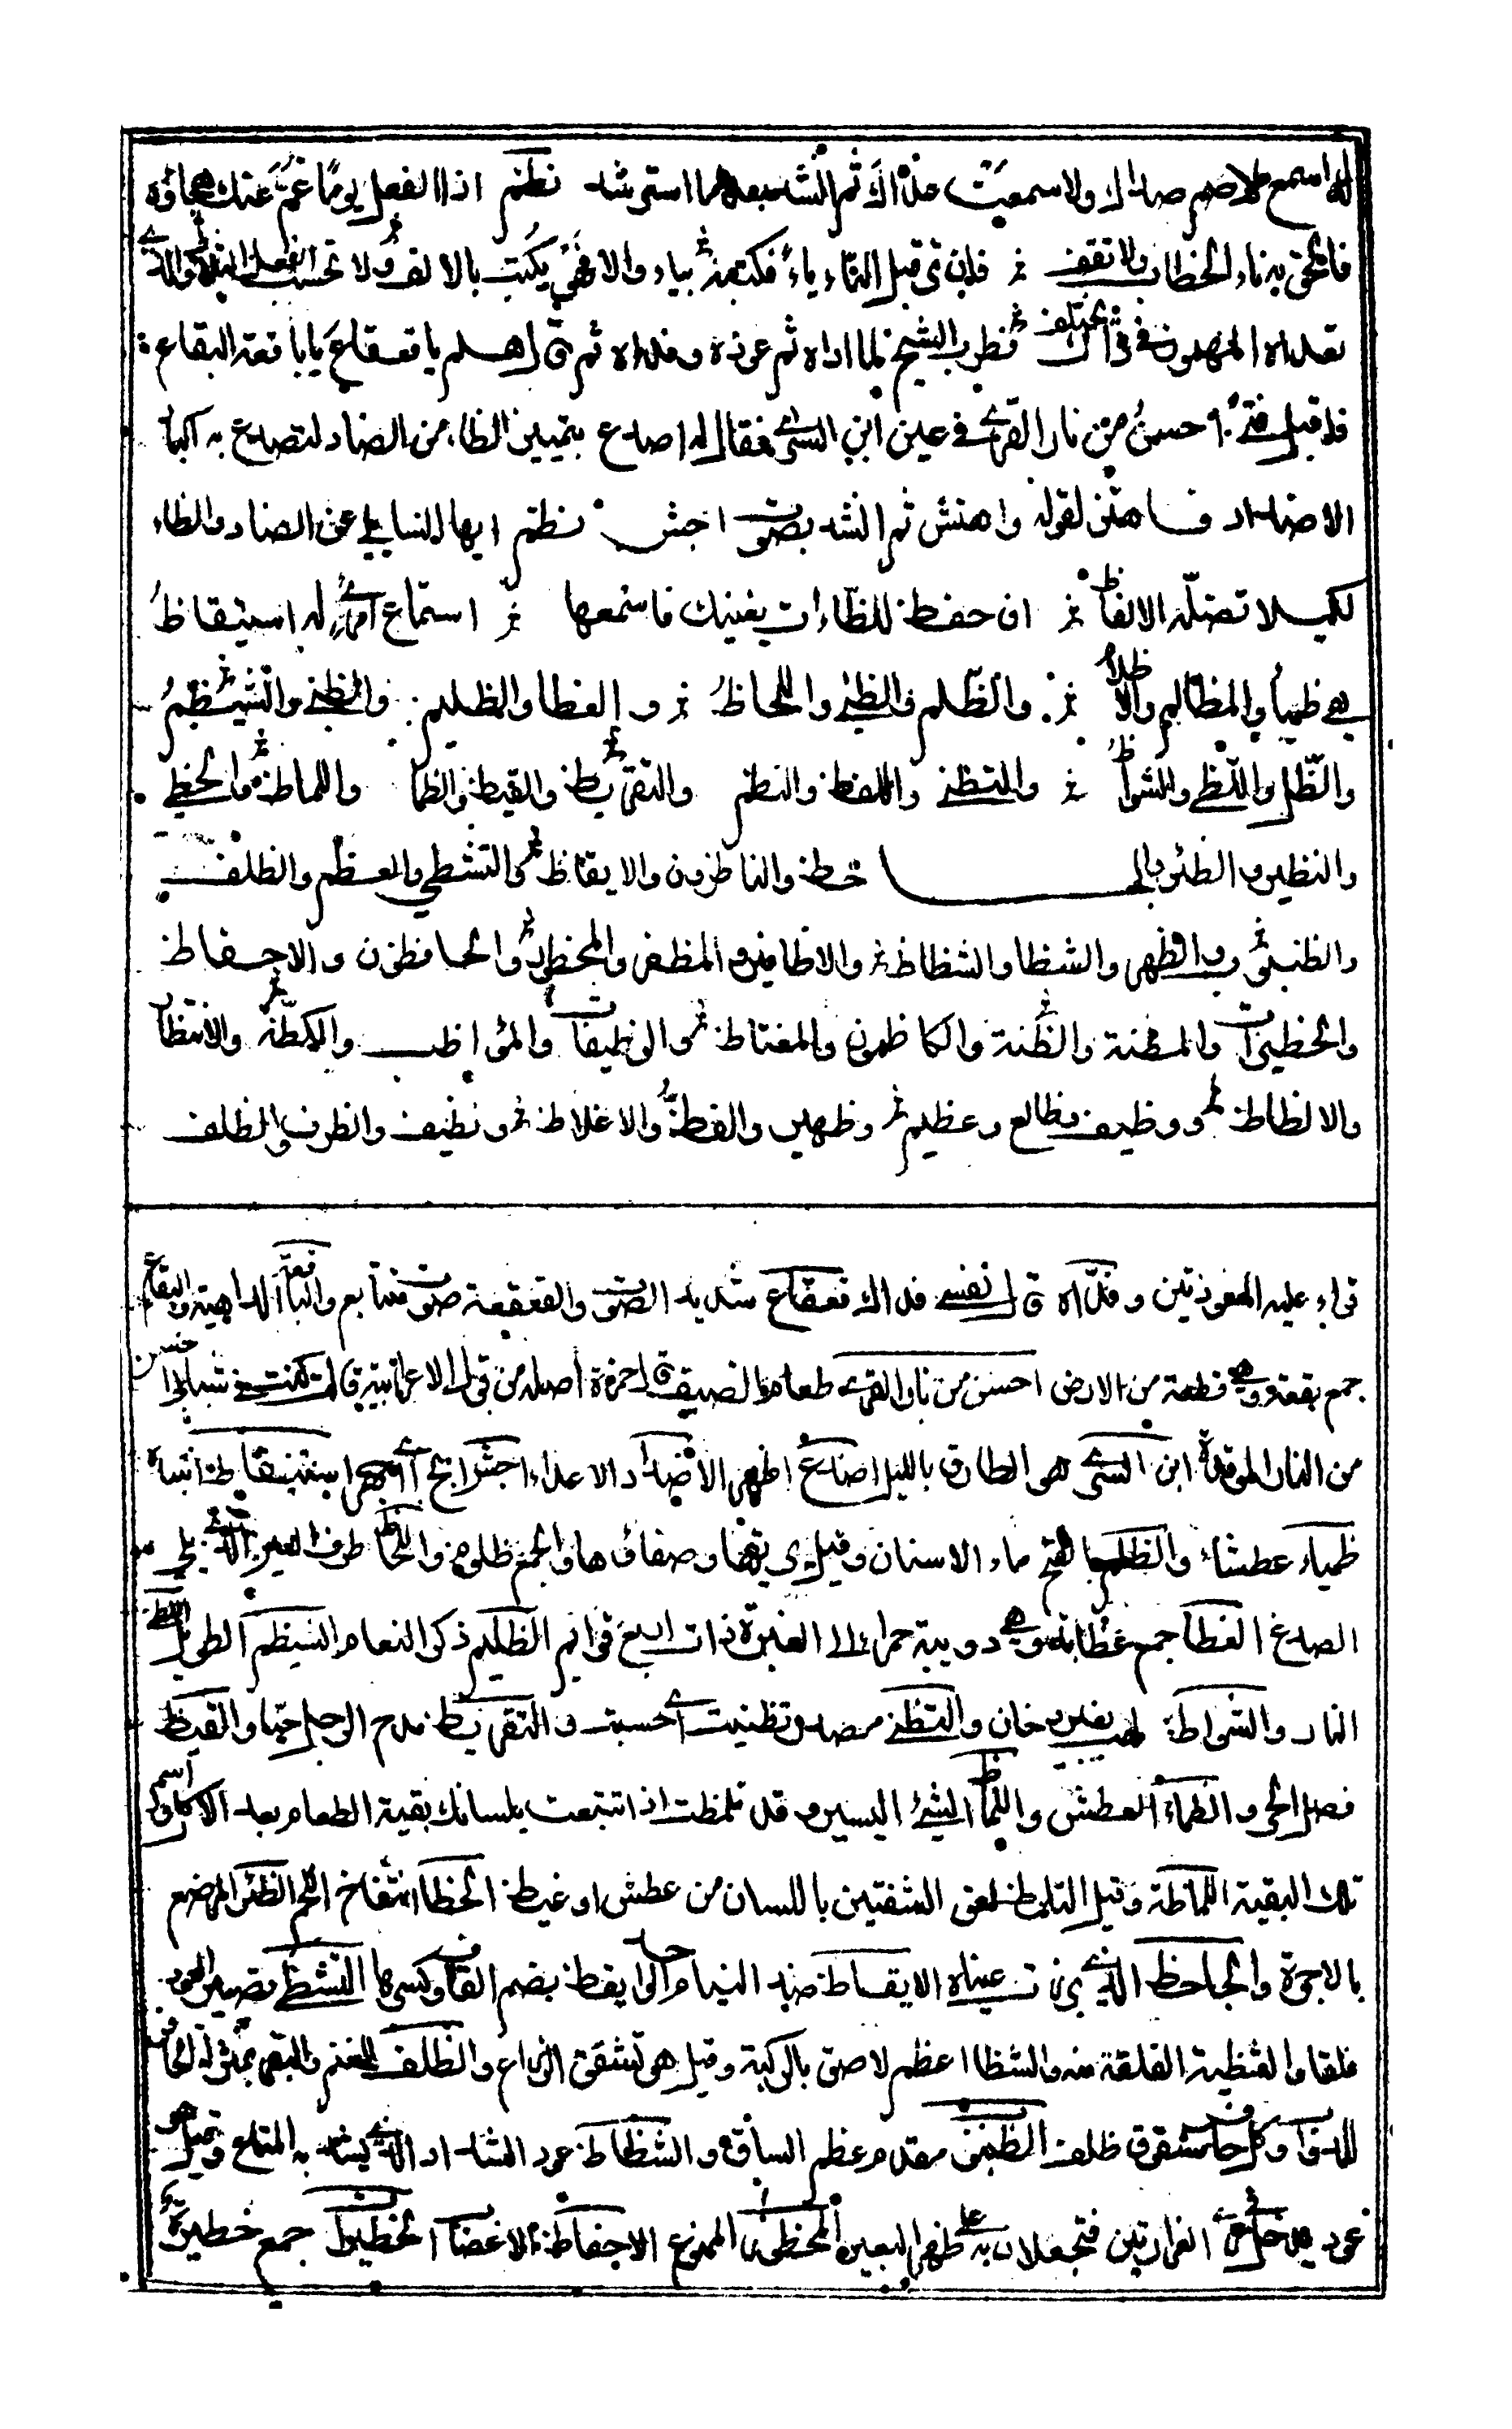 له اسمع لا صم صداك ولا سمعت عداك ثم انشد بعدها استرشد نظم اذا الفعل يوما غم عنك هجاؤه
فالحق به تاء الخطاب ولا تقف فان تر قبل التاء ياء فكتبه بياء والا فهو يكتب بالالف ولا تحسب الفعل الثلاثي والذي
تعداه المهموز في ذاك يختلف فطرب الشيخ لما اداه ثم عوذه وفداه ثم ق ل هلم يا قعقاع يا باقعة البقاع
فاقبل فتى احسن من نار القرى في عين ابن السرى فقال له اصدع بتمييز الظاء من الضاد لتصدع به اكباد
الاضداد فاهتز لقوله واهتش ثم انشد بصوت اجش نظم ايها السايلي عن الضاد والظاء
لكيلا تضله الالفاظ ان حفظ الظاءات يغنيك فاسمعها استماع امرئ له استيقاظ
هي ظمياء والمظالم والاظلام والظلم والظبي واللحاظ والعظا والظليم والظبي والشيظم
والظل واللظى والشواظ والتظني واللفظ والنظم والتقريظ والقيظ والظما واللماظ والحظي
والنظير والظئر والجاحظ والناظرون والايقاظ والتشظي والعظم والظلف
والظنبوب والظهر والشظا والشظاظ والاظافير والمظفر والمحظور والحافظون والاحفاظ
والحظيرات والمظنة والظنة والكاظمون والمغتاظ والوظيفات والمواظب والكظة والانتظار
والالظاظ ووظيف وظالع وعظيم وظهير والفظ والاغلاظ ونظيف والظرف والظلف
قراء عليه المعوذتين وفداه ق ل نفسي فداك قعقاع شديد الصوت والقعقعة صوت متتابع والباقعة الداهية والبقاع
جمع بقعة وهي قطعة من الارض احسن من نار القرى طعام الضيف ق ل حمزة اصله من قول الاعرابية قالت كنت في شبابي احسن
من النار الموقدة ابن السرى هو الطارق بالليل اصدع اظهر الاضداد الاعداء اجش ابح اي جهر استيقاظ انتباه
ظمياء عطشاء والظلم بالفتح ماء الاسنان وقيل بريقها وصفاؤها والجمع ظلوم واللحاظ طرف العين الذي يلي
الصدغ العظا جمع عظاية وهي دويبة حمراء الى الغبرة ذات اربع قوائم الظليم ذكر النعام الشيظم الطويل اللظى
النار والشواظ لهب بغير دخان والتظني مصدر تظنيت اي حسبت والتقريظ مدح الرجل حيا والقيظ
فصل الحر والظماء العطش واللماظ الشئ اليسير وقد تلمظت اذا تتبعت بلسانك بقية الطعام بعد الاكل واسم
تلك البقية اللماظة وقيل التلمظ لعق الشفتين باللسان من عطش او غيظ الحظا انتفاخ اللحم الظئر المرضع
بالاجرة والجاحظ الذي برزت عيناه الايقاظ ضد النيام والواحد يقظ بضم القاف وكسرها التشظي تصيير العود
فلقا والشظية الفلقة منه والشظا عظم لاصق بالركبة وقيل هو تشقق الذراع والظلف للغنم والبقر بمنزلة الحافر
للدواب وكل حافر مشقوق ظلف الظنبوب مقدم عظم الساق والشظاظ عود الشداد الذي يشد به المتاع وقيل هو
عود يدخل في الغرارتين فتجعلان به على ظهر البعير المحظور الممنوع الاحفاظ الاغضاب الحظيرات جمع حظيرة